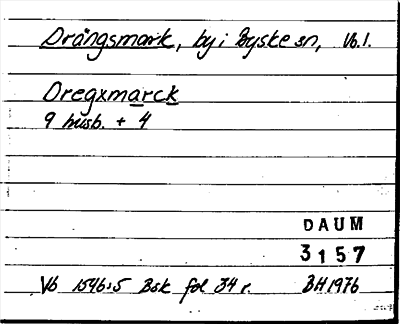 Drängsmark, by i Byske sn, Vb.l.
Dregxmarck
9 husb. + 4
DAUM
3157
Vb 1546:5 Bsk fol 34 r. BH 1976